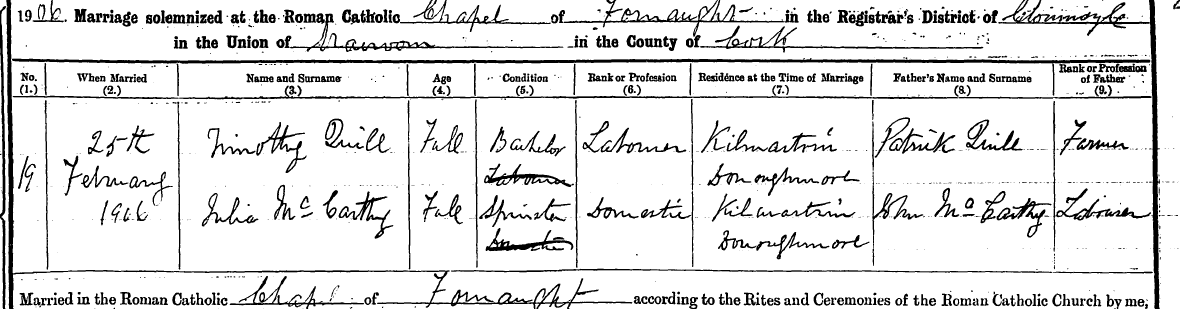 1906. Marriage solemnized at the Roman Catholic Chapel of Fornaught in the Registrar's District of
in the Union of in the County of Cork
No. (1.) When Married (2.) Name and Surname (3.) Age (4.) Condition (5.) Rank or Profession (6.) Residence at the Time of Marriage (7.) Father's Name and Surname (8.) Rank or Profession of Father (9.)
19
25th
February
1906
Timothy Quill Full Bachelor Labourer Kilmartin Patrick Quill Farmer
Labourer Donoughmore
Julia Mc Carthy Full Spinster Domestic Kilmartin John Mc Carthy Labourer
Domestic Donoughmore
Married in the Roman Catholic Chapel of Fornaught according to the Rites and Ceremonies of the Roman Catholic Church by me,